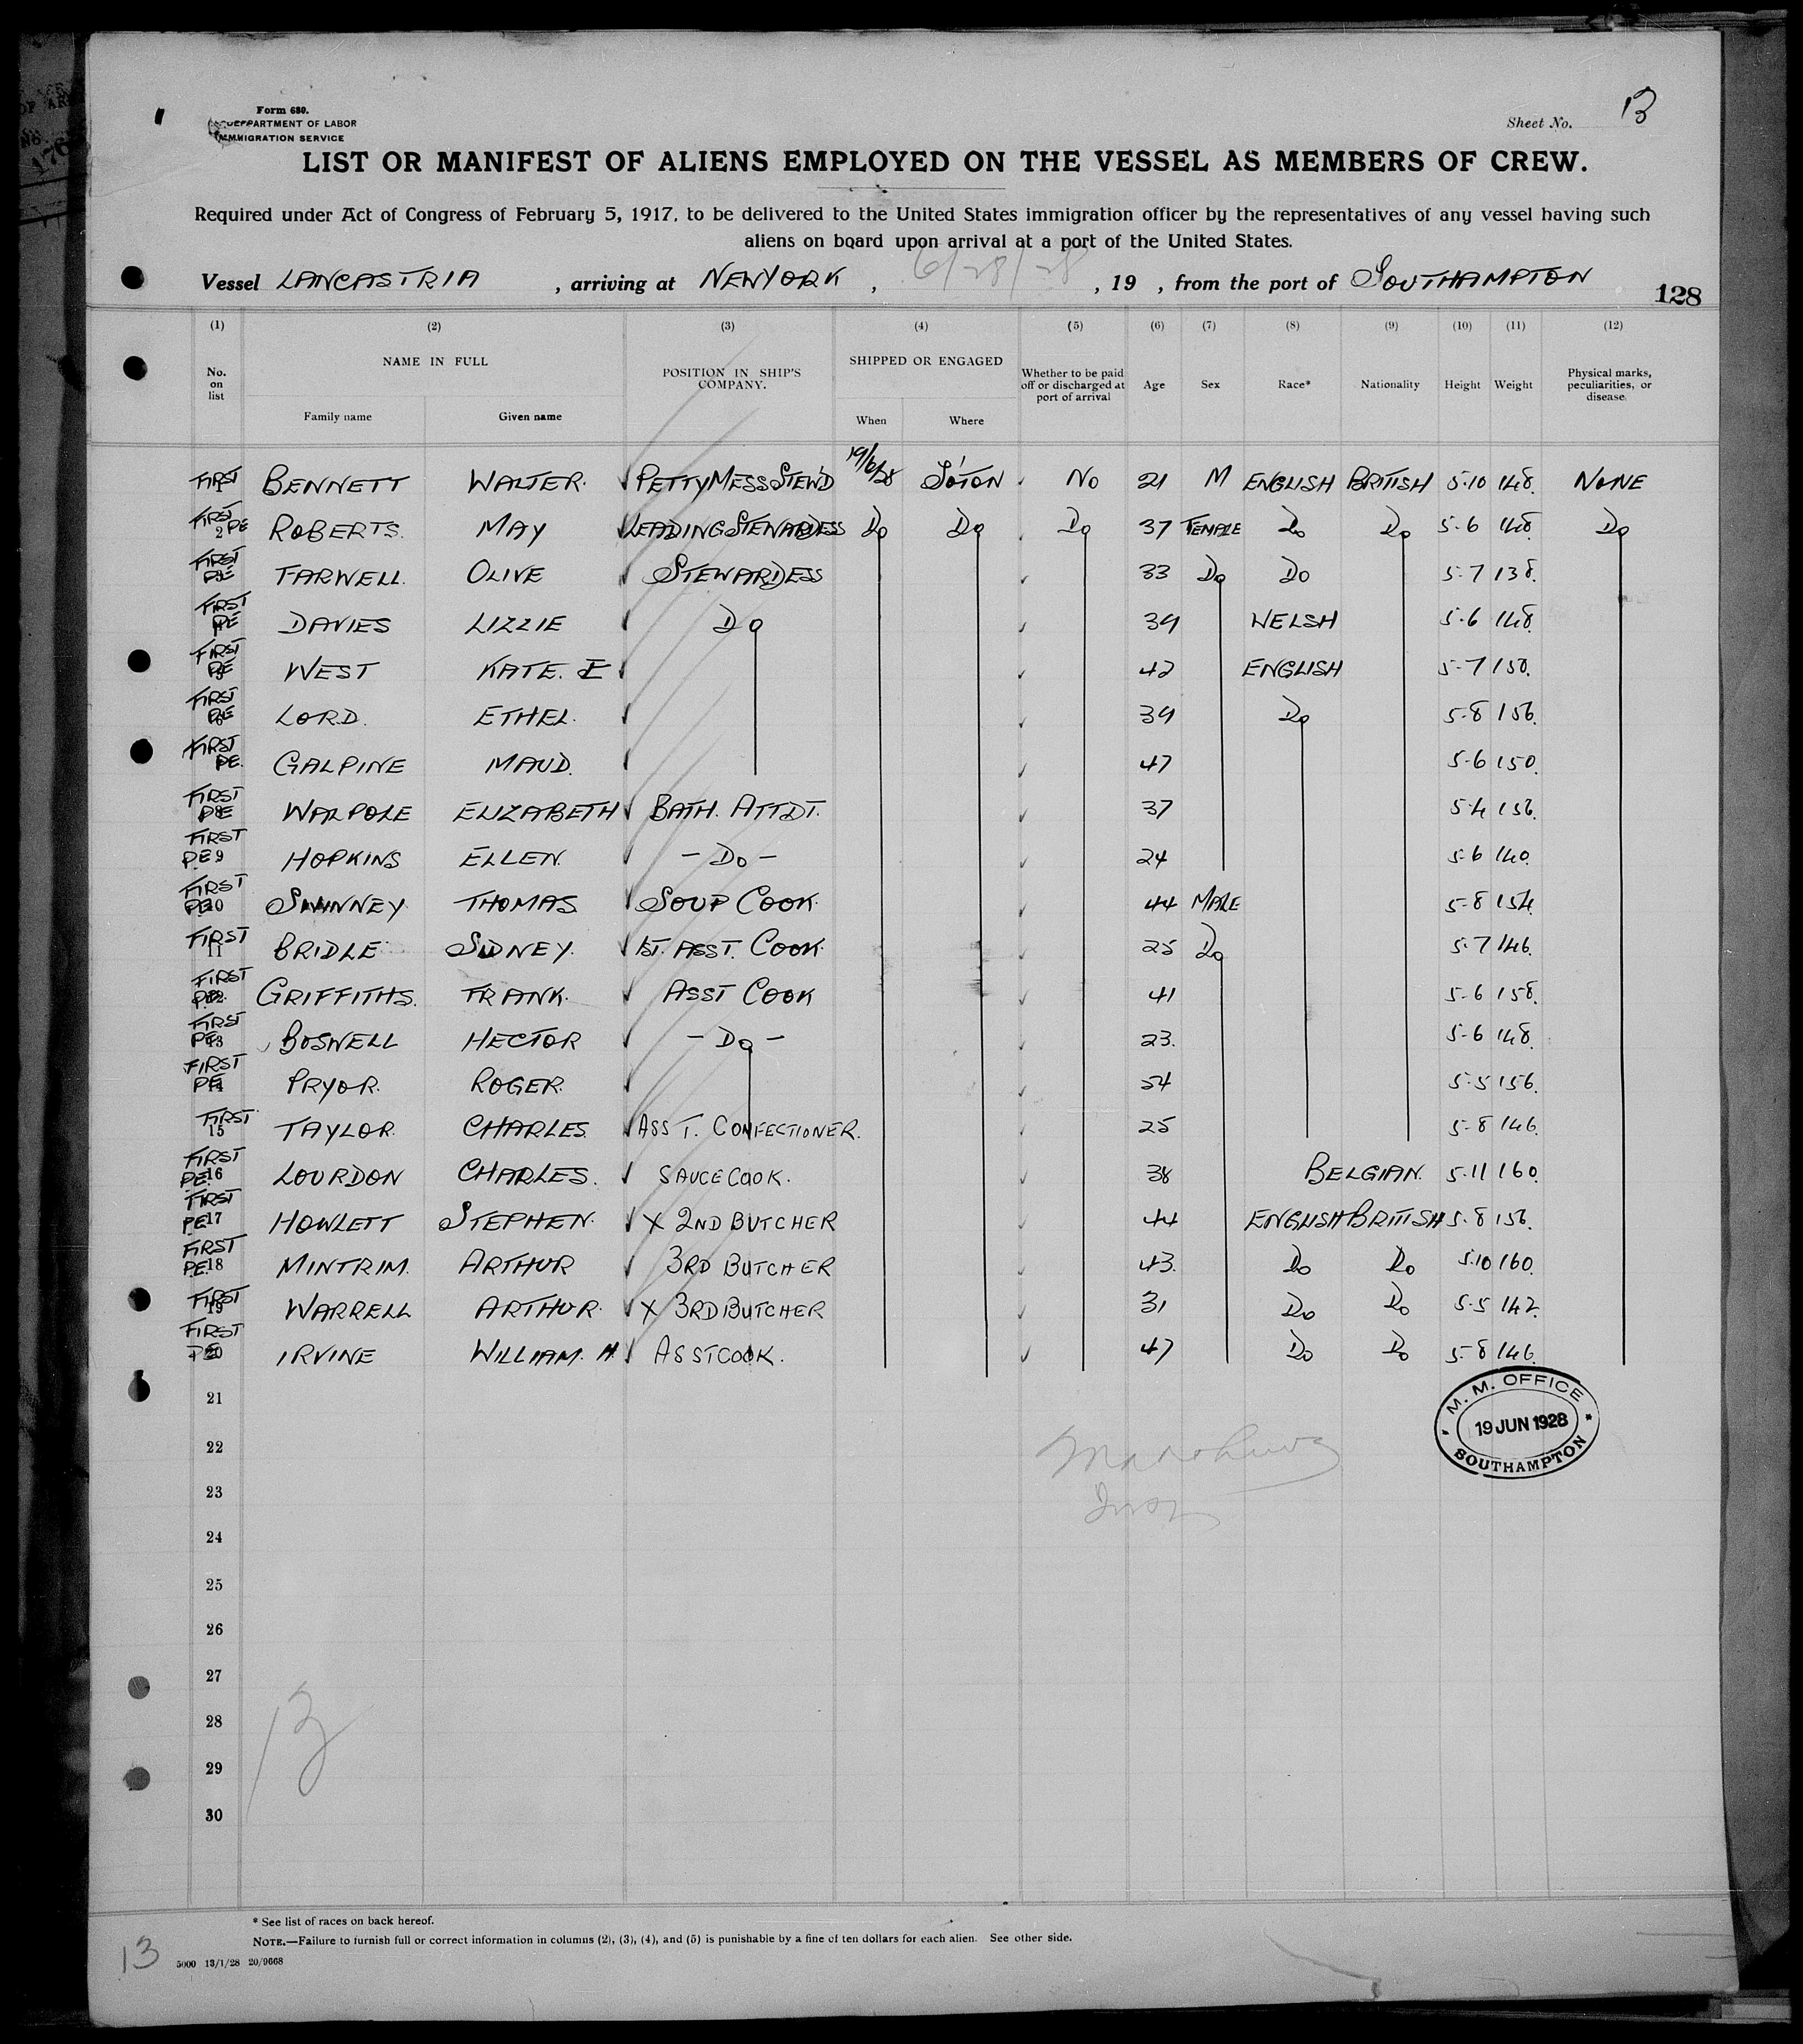 Form 680.
DEPARTMENT OF LABOR
IMMIGRATION SERVICE
Sheet No. 13
LIST OR MANIFEST OF ALIENS EMPLOYED ON THE VESSEL AS MEMBERS OF CREW.
Required under Act of Congress of February 5, 1917, to be delivered to the United States immigration officer by the representatives of any vessel having such
aliens on board upon arrival at a port of the United States.
Vessel LANCASTRIA , arriving at NEW YORK , 6/28/28 , 19 , from the port of SOUTHAMPTON
128
(1) (2) (3) (4) (5) (6) (7) (8) (9) (10) (11) (12)
No. on list NAME IN FULL Family name Given name POSITION IN SHIP'S COMPANY. SHIPPED OR ENGAGED When Where Whether to be paid off or discharged at port of arrival Age Sex Race* Nationality Height Weight Physical marks, peculiarities, or disease.
FIRST 1 BENNETT WALTER. PETTY MESS STEW'D 19/6/28 S'OTON No 21 M ENGLISH BRITISH 5-10 148. NONE
FIRST 2 PE ROBERTS. MAY LEADING STEWARDESS Do Do Do 37 FEMALE Do Do 5-6 148. Do
FIRST PE FARWELL. OLIVE STEWARDESS 33 Do Do 5-7 138.
FIRST PE DAVIES LIZZIE Do 39 WELSH 5-6 148.
FIRST PE WEST KATE. E 42 ENGLISH 5-7 150.
FIRST PE LORD. ETHEL. 39 Do 5-8 156.
FIRST PE. GALPINE MAUD. 47 5-6 150.
FIRST PE WALPOLE ELIZABETH BATH. ATTDT. 37 5-4 156.
FIRST PE 9 HOPKINS ELLEN. - Do - 24 5-6 140.
FIRST PE 10 SWINNEY THOMAS SOUP COOK. 44 MALE 5-8 154.
FIRST 11 BRIDLE SIDNEY. 1ST. ASST. COOK. 25 Do 5-7 146.
FIRST PE 12 GRIFFITHS. FRANK. ASST COOK 41 5-6 158.
FIRST PE 13 BOSWELL HECTOR - Do - 23. 5-6 148.
FIRST PE PRYOR. ROGER. 54 5-5 156.
FIRST 15 TAYLOR. CHARLES. ASST. CONFECTIONER. 25 5-8 146.
FIRST PE 16 LOURDON CHARLES. SAUCE COOK. 38 BELGIAN. 5-11 160.
FIRST PE 17 HOWLETT STEPHEN. X 2ND BUTCHER 44 ENGLISH BRITISH 5-8 156.
FIRST PE 18 MINTRIM. ARTHUR 3RD BUTCHER 43. Do Do 5-10 160.
FIRST 19 WARRELL ARTHUR. X 3RD BUTCHER 31 Do Do 5-5 142.
FIRST PE 20 IRVINE WILLIAM. H. ASST COOK. 47 Do Do 5-8 146.
21
M. M. OFFICE
19 JUN 1928
SOUTHAMPTON
22
23
24
25
26
27
28
13
29
30
* See list of races on back hereof.
NOTE.—Failure to furnish full or correct information in columns (2), (3), (4), and (5) is punishable by a fine of ten dollars for each alien. See other side.
13
5000 13/1/28 20/9668